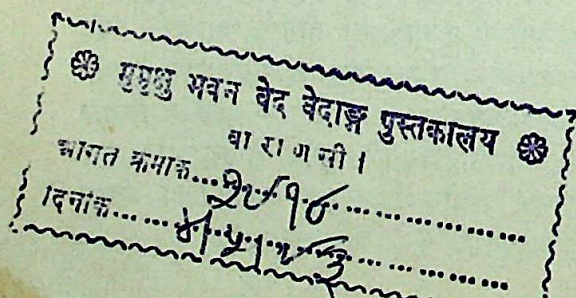 ❁ मुमुक्षु भवन वेद वेदाङ्ग पुस्तकालय ❁
वा रा ण सी ।
आगत क्रमाक.............................
दिनांक.............................